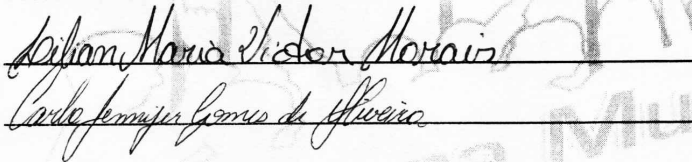 Lilian Maria Victor Morais
Carla Jennifer Gomes de Oliveira